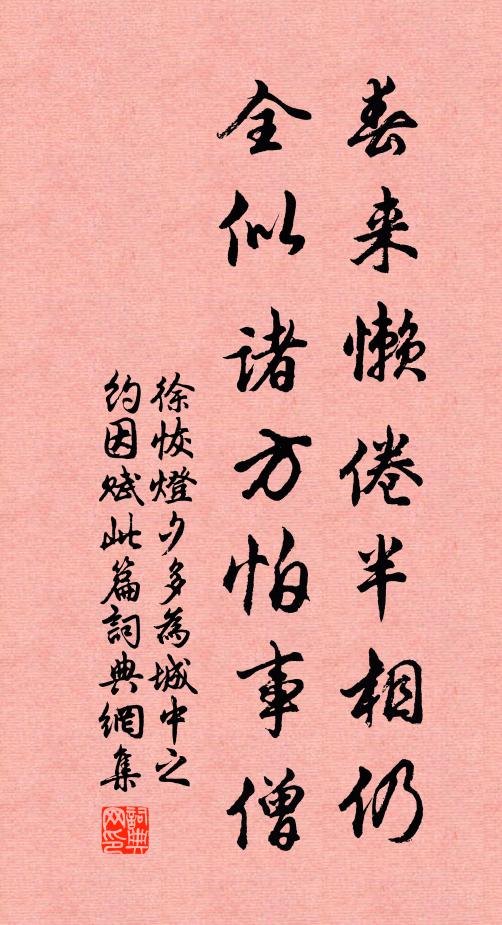 春来懒倦半相仍
全似诸方怕事僧
徐恢燈夕多為城中之
約因赋此篇詞典網集
詞典
网印